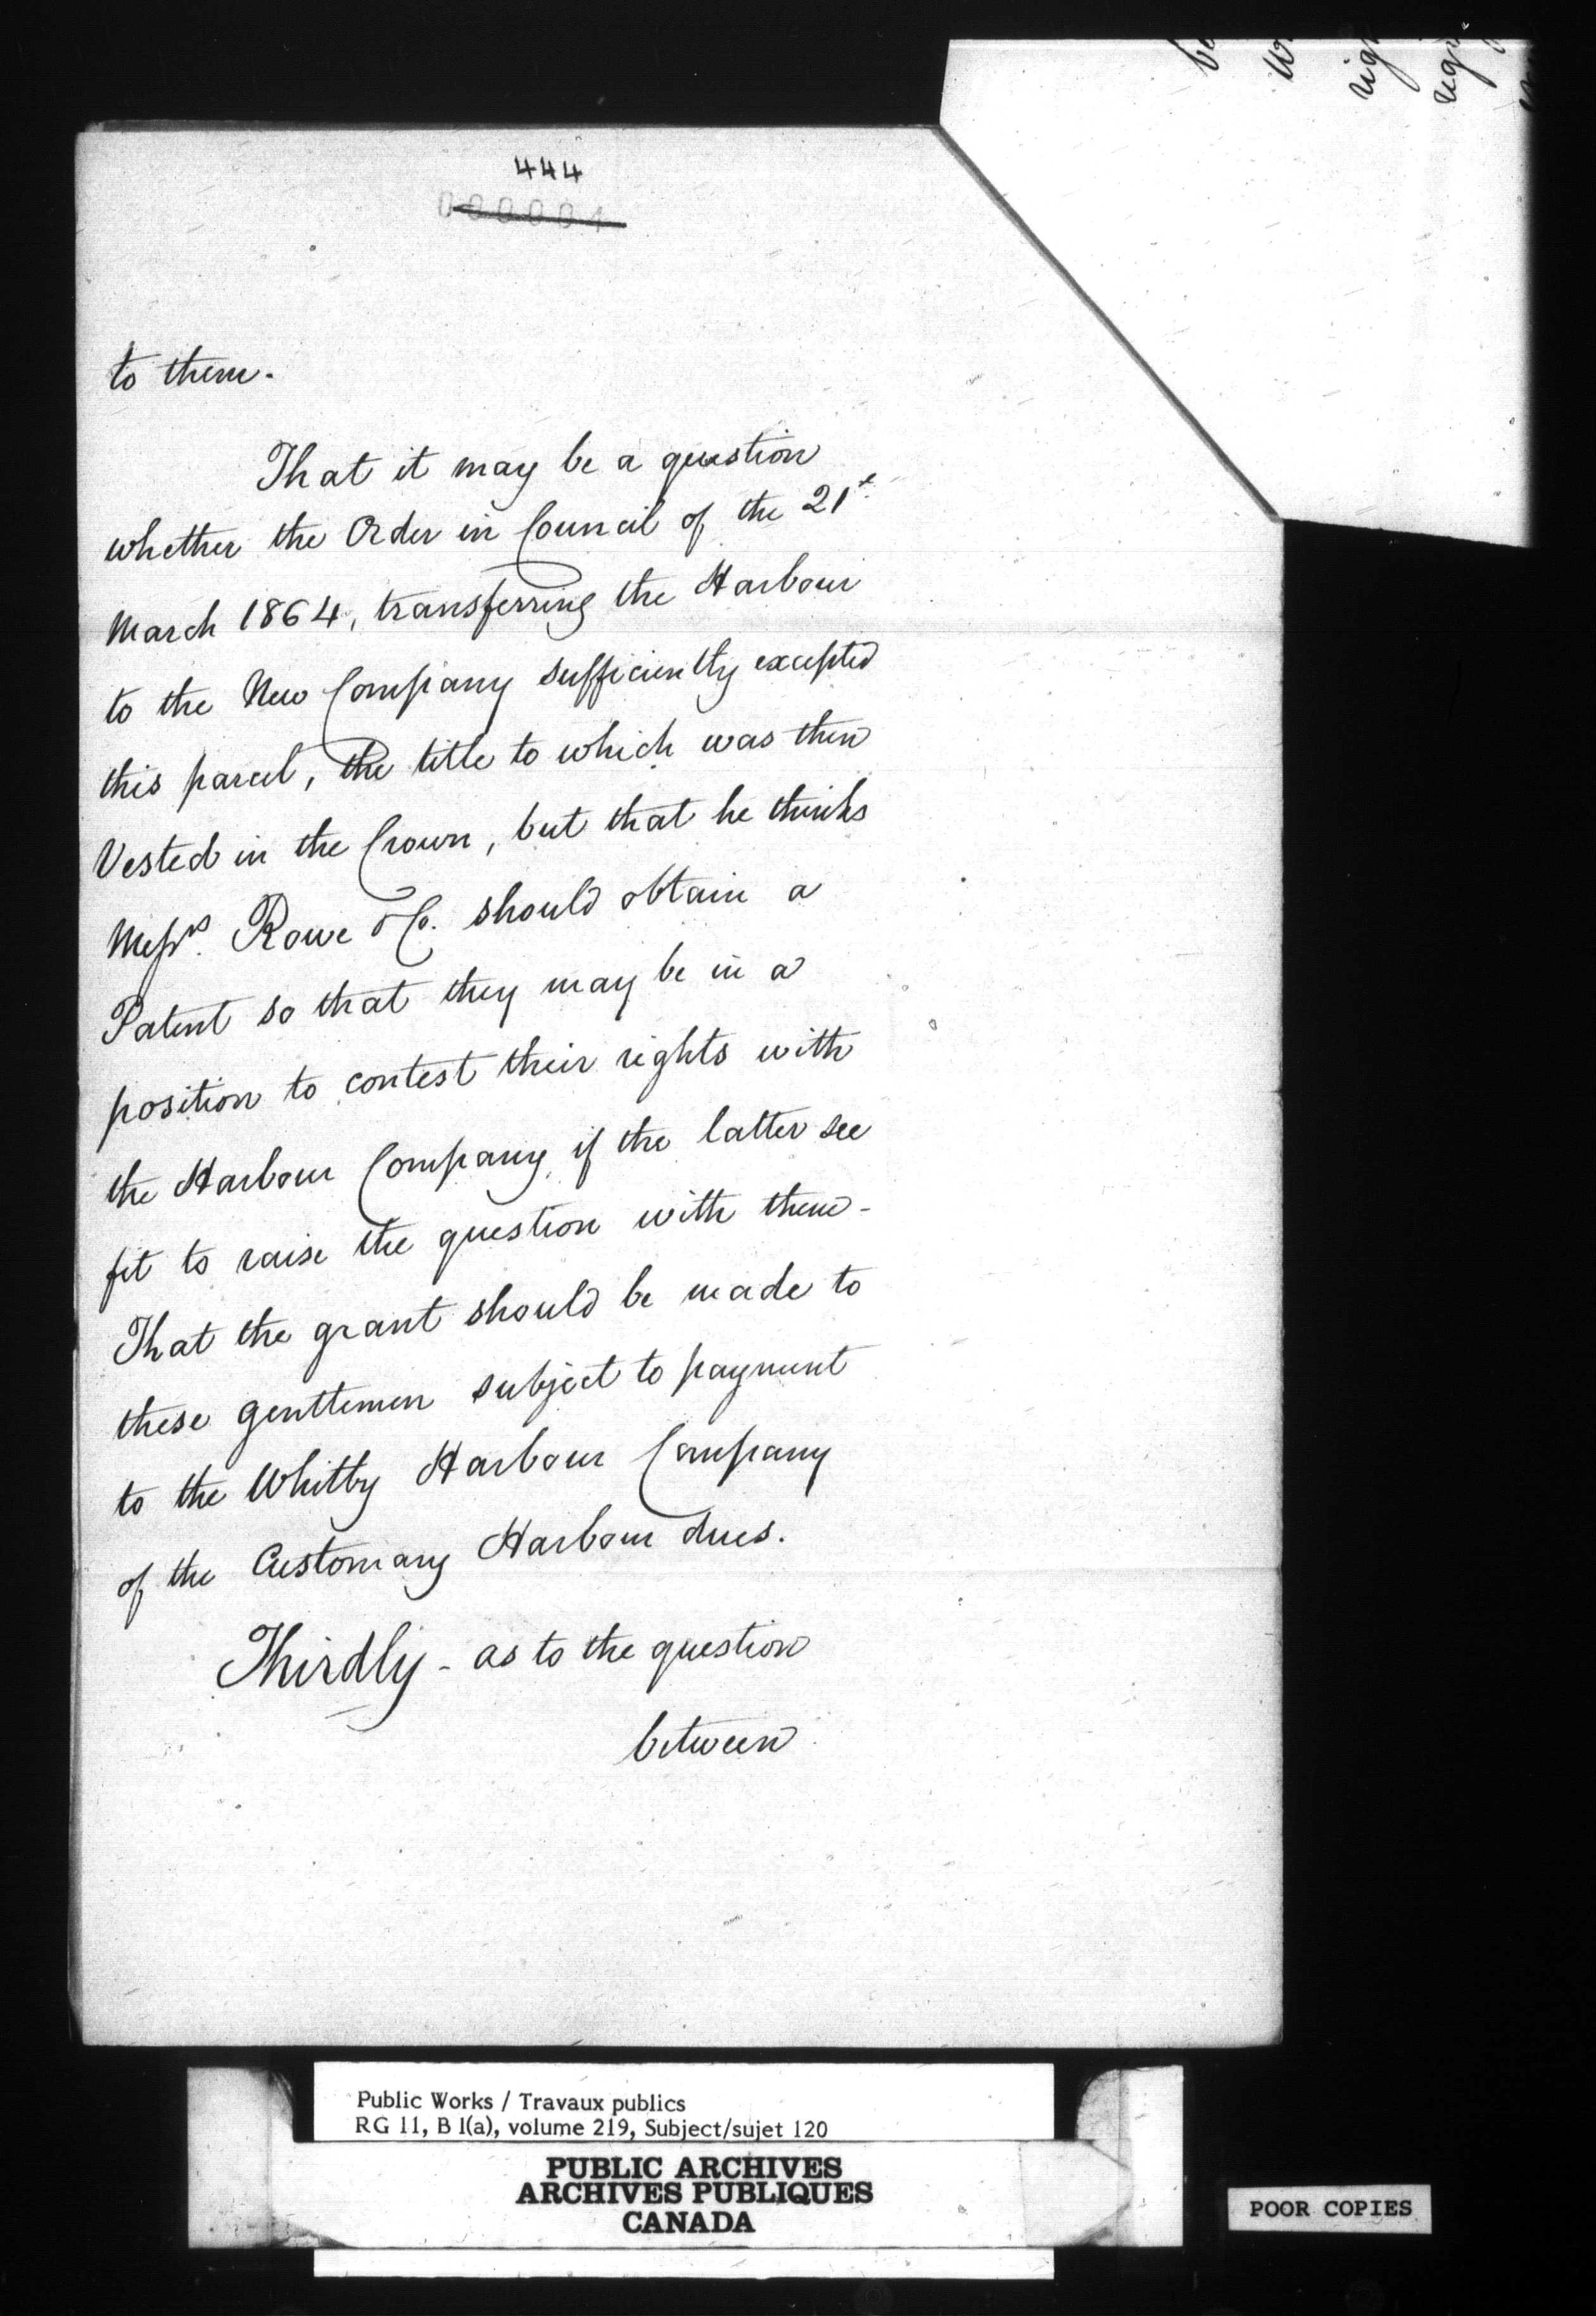 444
000001
to them.
That it may be a question
whether the Order in Council of the 21st
March 1864, transferring the Harbour
to the New Company sufficiently excepted
this parcel, the title to which was then
Vested in the Crown, but that he thinks
Messrs. Rowe & Co. should obtain a
Patent so that they may be in a
position to contest their rights with
the Harbour Company, if the latter see
fit to raise the question with them-
That the grant should be made to
these gentlemen subject to payment
to the Whitby Harbour Company
of the Customary Harbour dues.
Thirdly - as to the question
between
Public Works / Travaux publics
RG 11, B 1(a), volume 219, Subject/sujet 120
PUBLIC ARCHIVES
ARCHIVES PUBLIQUES
CANADA
POOR COPIES